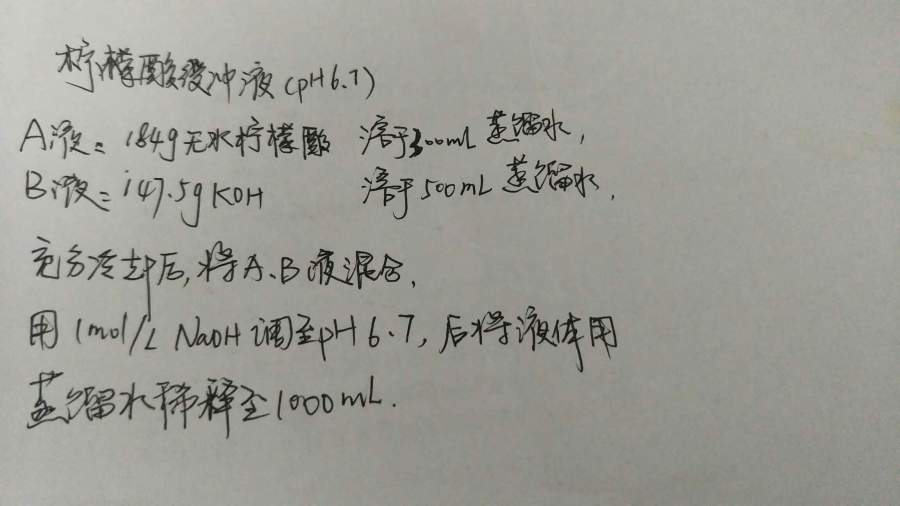 柠檬酸缓冲液(pH6.7)
A液= 184g无水柠檬酸 溶于300mL蒸馏水,
B液= 147.5gKOH 溶于500mL蒸馏水.
充分冷却后,将A、B液混合,
用1mol/L NaOH调至pH6.7,后将液体用
蒸馏水稀释至1000mL.